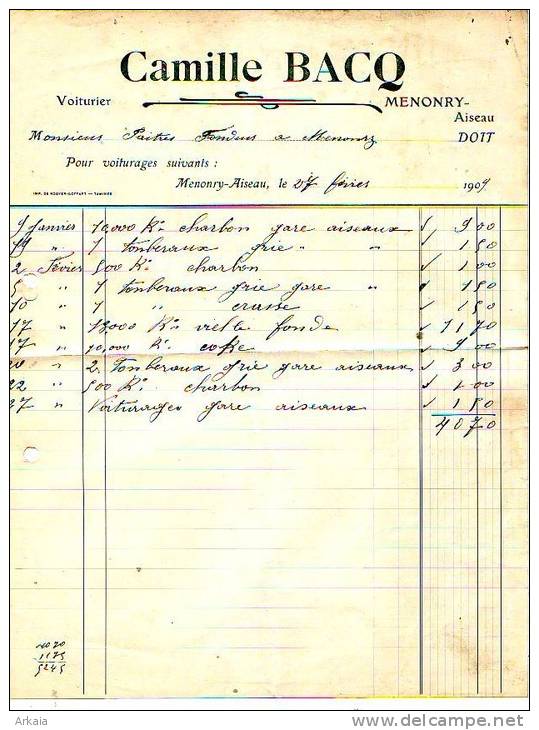 Camille BACQ
Voiturier MENONRY-
Aiseau
Monsieur Paitres Fondeus a Menonry DOIT
Pour voiturages suivants :
Menonry-Aiseau, le 27 févries 1904
IMP. DE ROOVER-GOFFART — TAMINES
9 Janvier 10,000 Ko charbon gare aiseaux 9 00
19 " 1 tonberaux grie " " 1 50
2 Févier 500 Ko charbon 1 00
5 " 1 tonberaux grie gare " 1 50
10 " 1 " crasse 1 50
17 " 13,000 Ko vielle fonde 11 70
17 " 10,000 Ko coke 9 00
20 " 2 Tonberaux grie gare aiseaux 3 00
22 " 500 Ko charbon 1 00
27 " Voiturages gare aiseaux 1 50
40 70
4070
1175
5245
Arkaia
www.delcampe.net